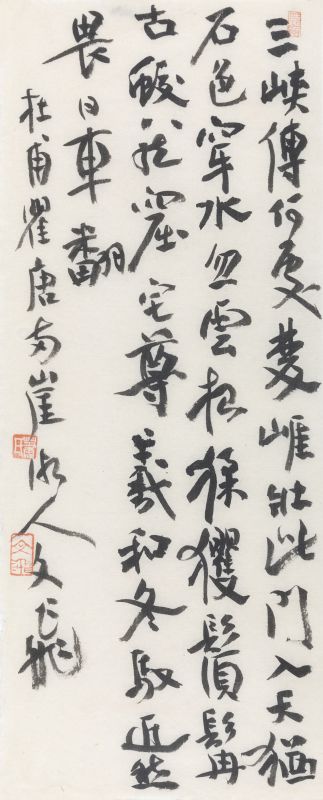 三峽傳何處雙崖壯此門入天猶
石色穿水忽雲根猱玃鬚髯
古蛟龍窟宅尊羲和冬馭近愁
畏日車翻
杜甫瞿唐兩崖 人文